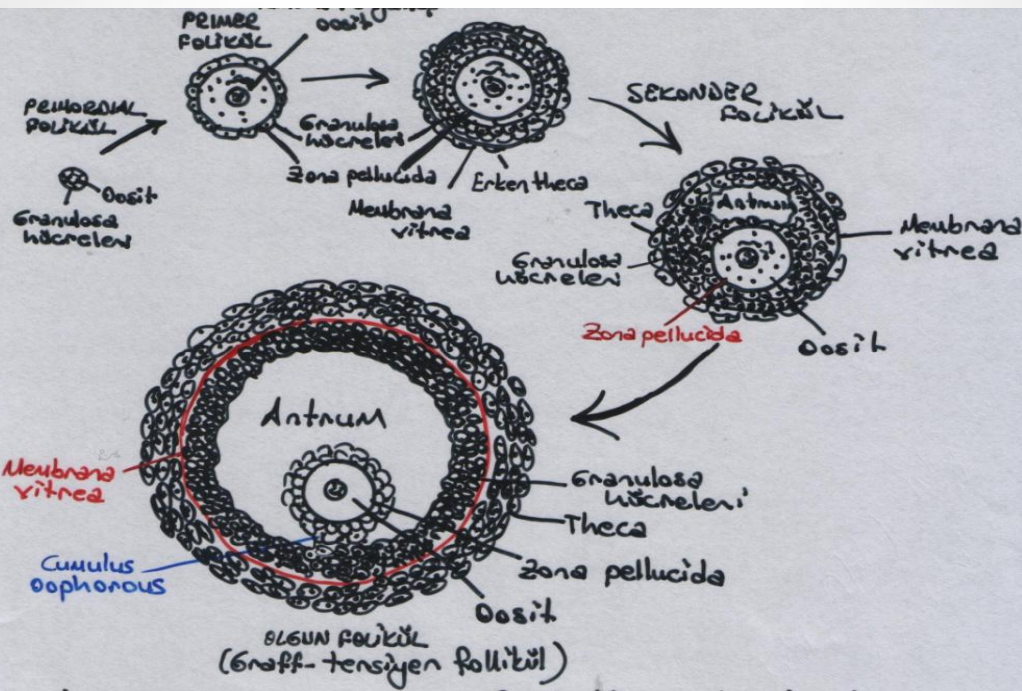 PRIMER
FOLİKÜL
Oosit
PRIMORDIAL
FOLİKÜL
Oosit
Granulosa
hücreleri
Granulosa
hücreleri
Zona pellucida
Membrana
vitrea
Erken theca
SEKONDER
FOLİKÜL
Theca
Antrum
Granulosa
hücreleri
Membrana
vitrea
Zona pellucida
Oosit
Antrum
Membrana
vitrea
Cumulus
oophorous
Granulosa
hücreleri
Theca
Zona pellucida
Oosit
OLGUN FOLİKÜL
(Graff-tensiyen follikül)